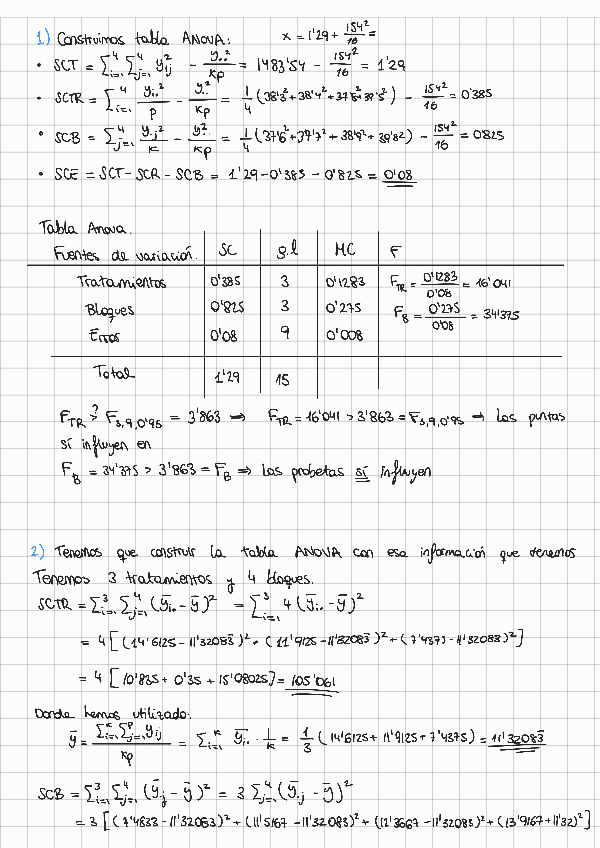 1) Construimos tabla ANOVA: x = 1'29 + 154²/16 =
• SCT = Σ_{i=1}^4 Σ_{j=1}^4 y_{ij}² - y..²/kp = 1483'54 - 154²/16 = 1'29
• SCTR = Σ_{i=1}^4 y_{i.}²/p - y..²/kp = 1/4 (38'3² + 38'4² + 37'8² + 39'5²) - 154²/16 = 0'385
• SCB = Σ_{j=1}^4 y_{.j}²/k - y..²/kp = 1/4 (37'6² + 37'7² + 38'9² + 39'8²) - 154²/16 = 0825
• SCE = SCT - SCR - SCB = 1'29 - 0'385 - 0'825 = 0'08
Tabla Anova.
Fuentes de variación. SC g.l MC F
Tratamientos 0'385 3 0'1283 F_TR = 0'1283/0'08 = 16'041
Bloques 0'825 3 0'275 F_B = 0'275/0'08 = 34'375
Error 0'08 9 0'008
Total 1'29 15
F_TR >? F_{3,9,0'95} = 3'863 ⇒ F_TR = 16'041 > 3'863 = F_{3,9,0'95} ⇒ Las puntas
sí influyen en
F_B = 34'375 > 3'863 = F_B ⇒ Las probetas sí influyen
2) Tenemos que construir la tabla ANOVA con esa información que tenemos
Tenemos 3 tratamientos y 4 bloques.
SCTR = Σ_{i=1}^3 Σ_{j=1}^4 (ȳ_{i.} - ȳ)² = Σ_{i=1}^3 4 (ȳ_{i.} - ȳ)²
= 4 [(14'6125 - 11'32083)² + (11'9125 - 11'32083)² + (7'4375 - 11'32083)²]
= 4 [10'835 + 0'35 + 15'08025] = 105'061
Donde hemos utilizado:
ȳ = Σ_{i=1}^k Σ_{j=1}^p y_{ij}/kp = Σ_{i=1}^k ȳ_{i.} · 1/k = 1/3 (14'6125 + 11'9125 + 7'4375) = 11'32083
SCB = Σ_{i=1}^3 Σ_{j=1}^4 (ȳ_{.j} - ȳ)² = 3 Σ_{j=1}^4 (ȳ_{.j} - ȳ)²
= 3 [(7'4833 - 11'32083)² + (11'5167 - 11'32083)² + (12'3667 - 11'32083)² + (13'9167 - 11'32)²]